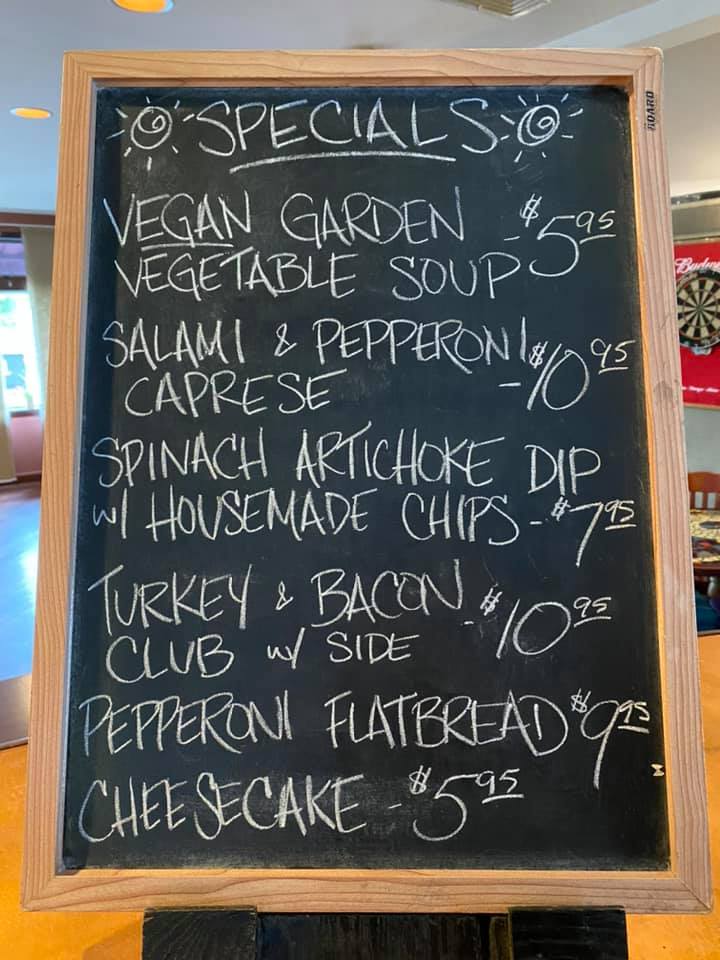 SPECIALS
VEGAN GARDEN
VEGETABLE SOUP - $5.95
SALAMI & PEPPERONI
CAPRESE - $10.95
SPINACH ARTICHOKE DIP
w/ HOUSEMADE CHIPS - $7.95
TURKEY & BACON
CLUB w/ SIDE - $10.95
PEPPERONI FLATBREAD $9.95
CHEESECAKE - $5.95
BOARD